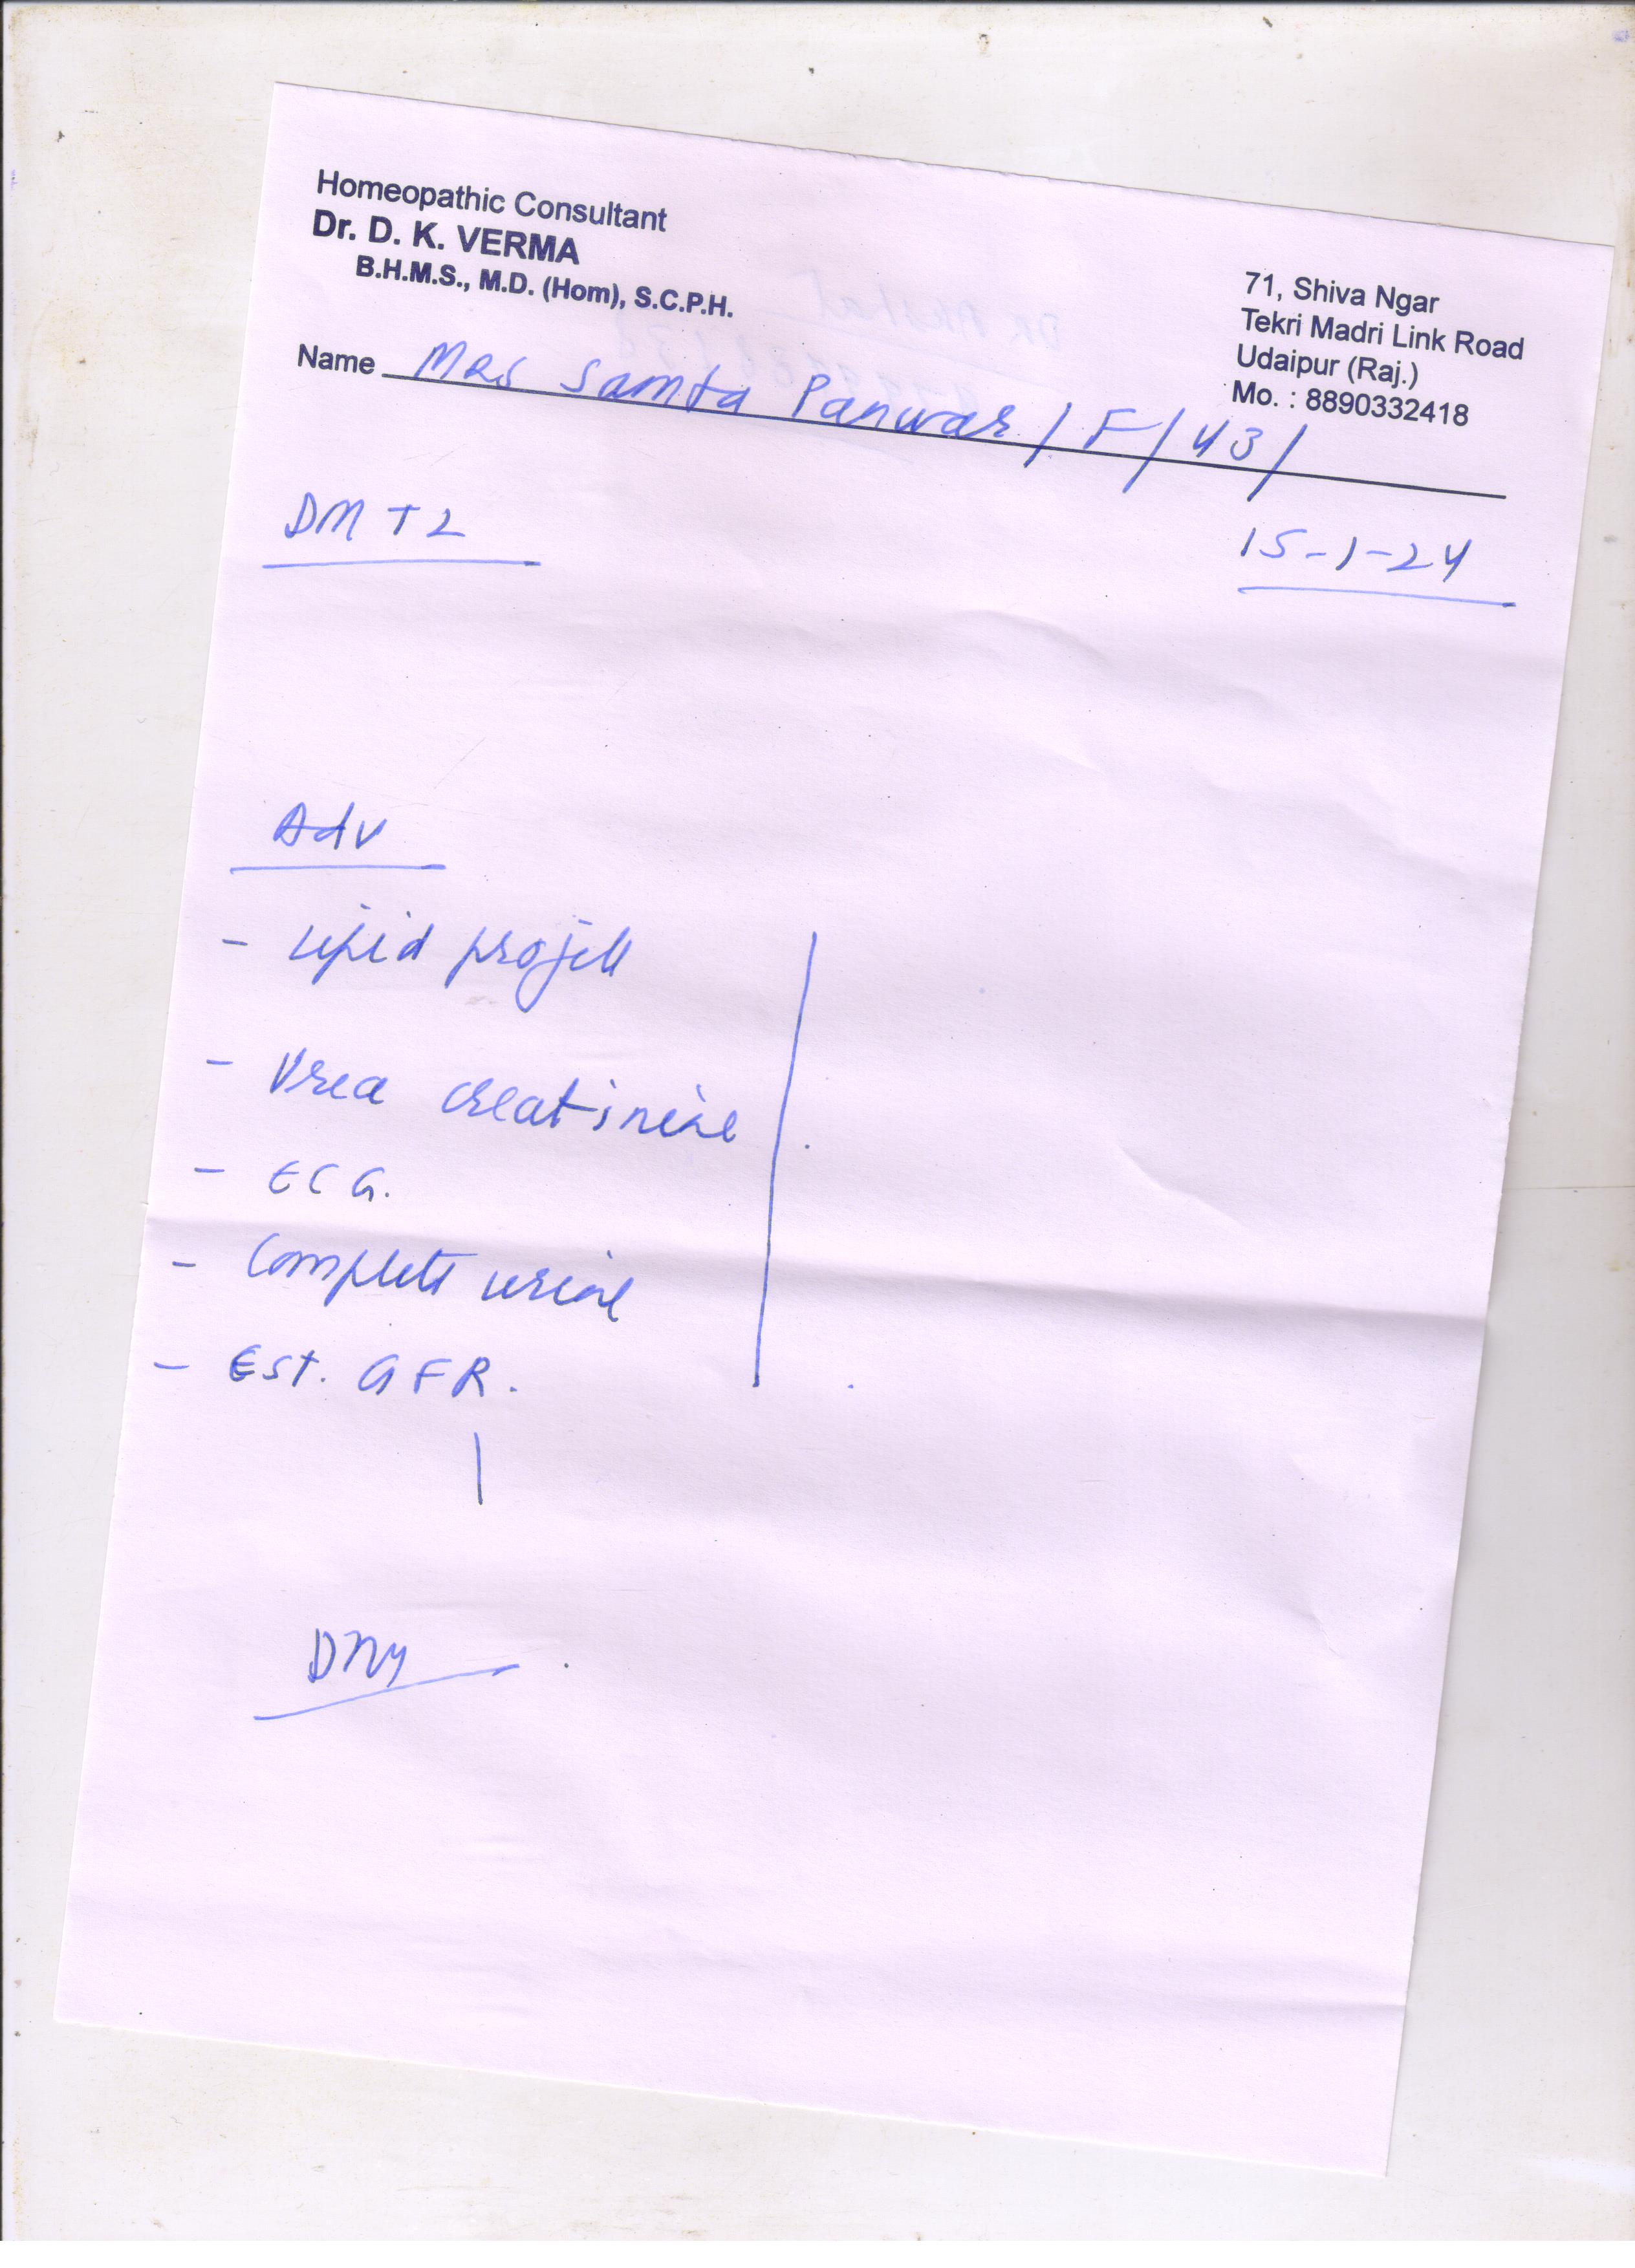 Homeopathic Consultant
Dr. D. K. VERMA
B.H.M.S., M.D. (Hom), S.C.P.H.
71, Shiva Ngar
Tekri Madri Link Road
Udaipur (Raj.)
Mo. : 8890332418
Name Mrs Samta Panwar / F / 43 /
DM T2
15-1-24
Adv
- Lipid profile
- Urea creatinine
- ECG.
- Complete urine
- Est. GFR.